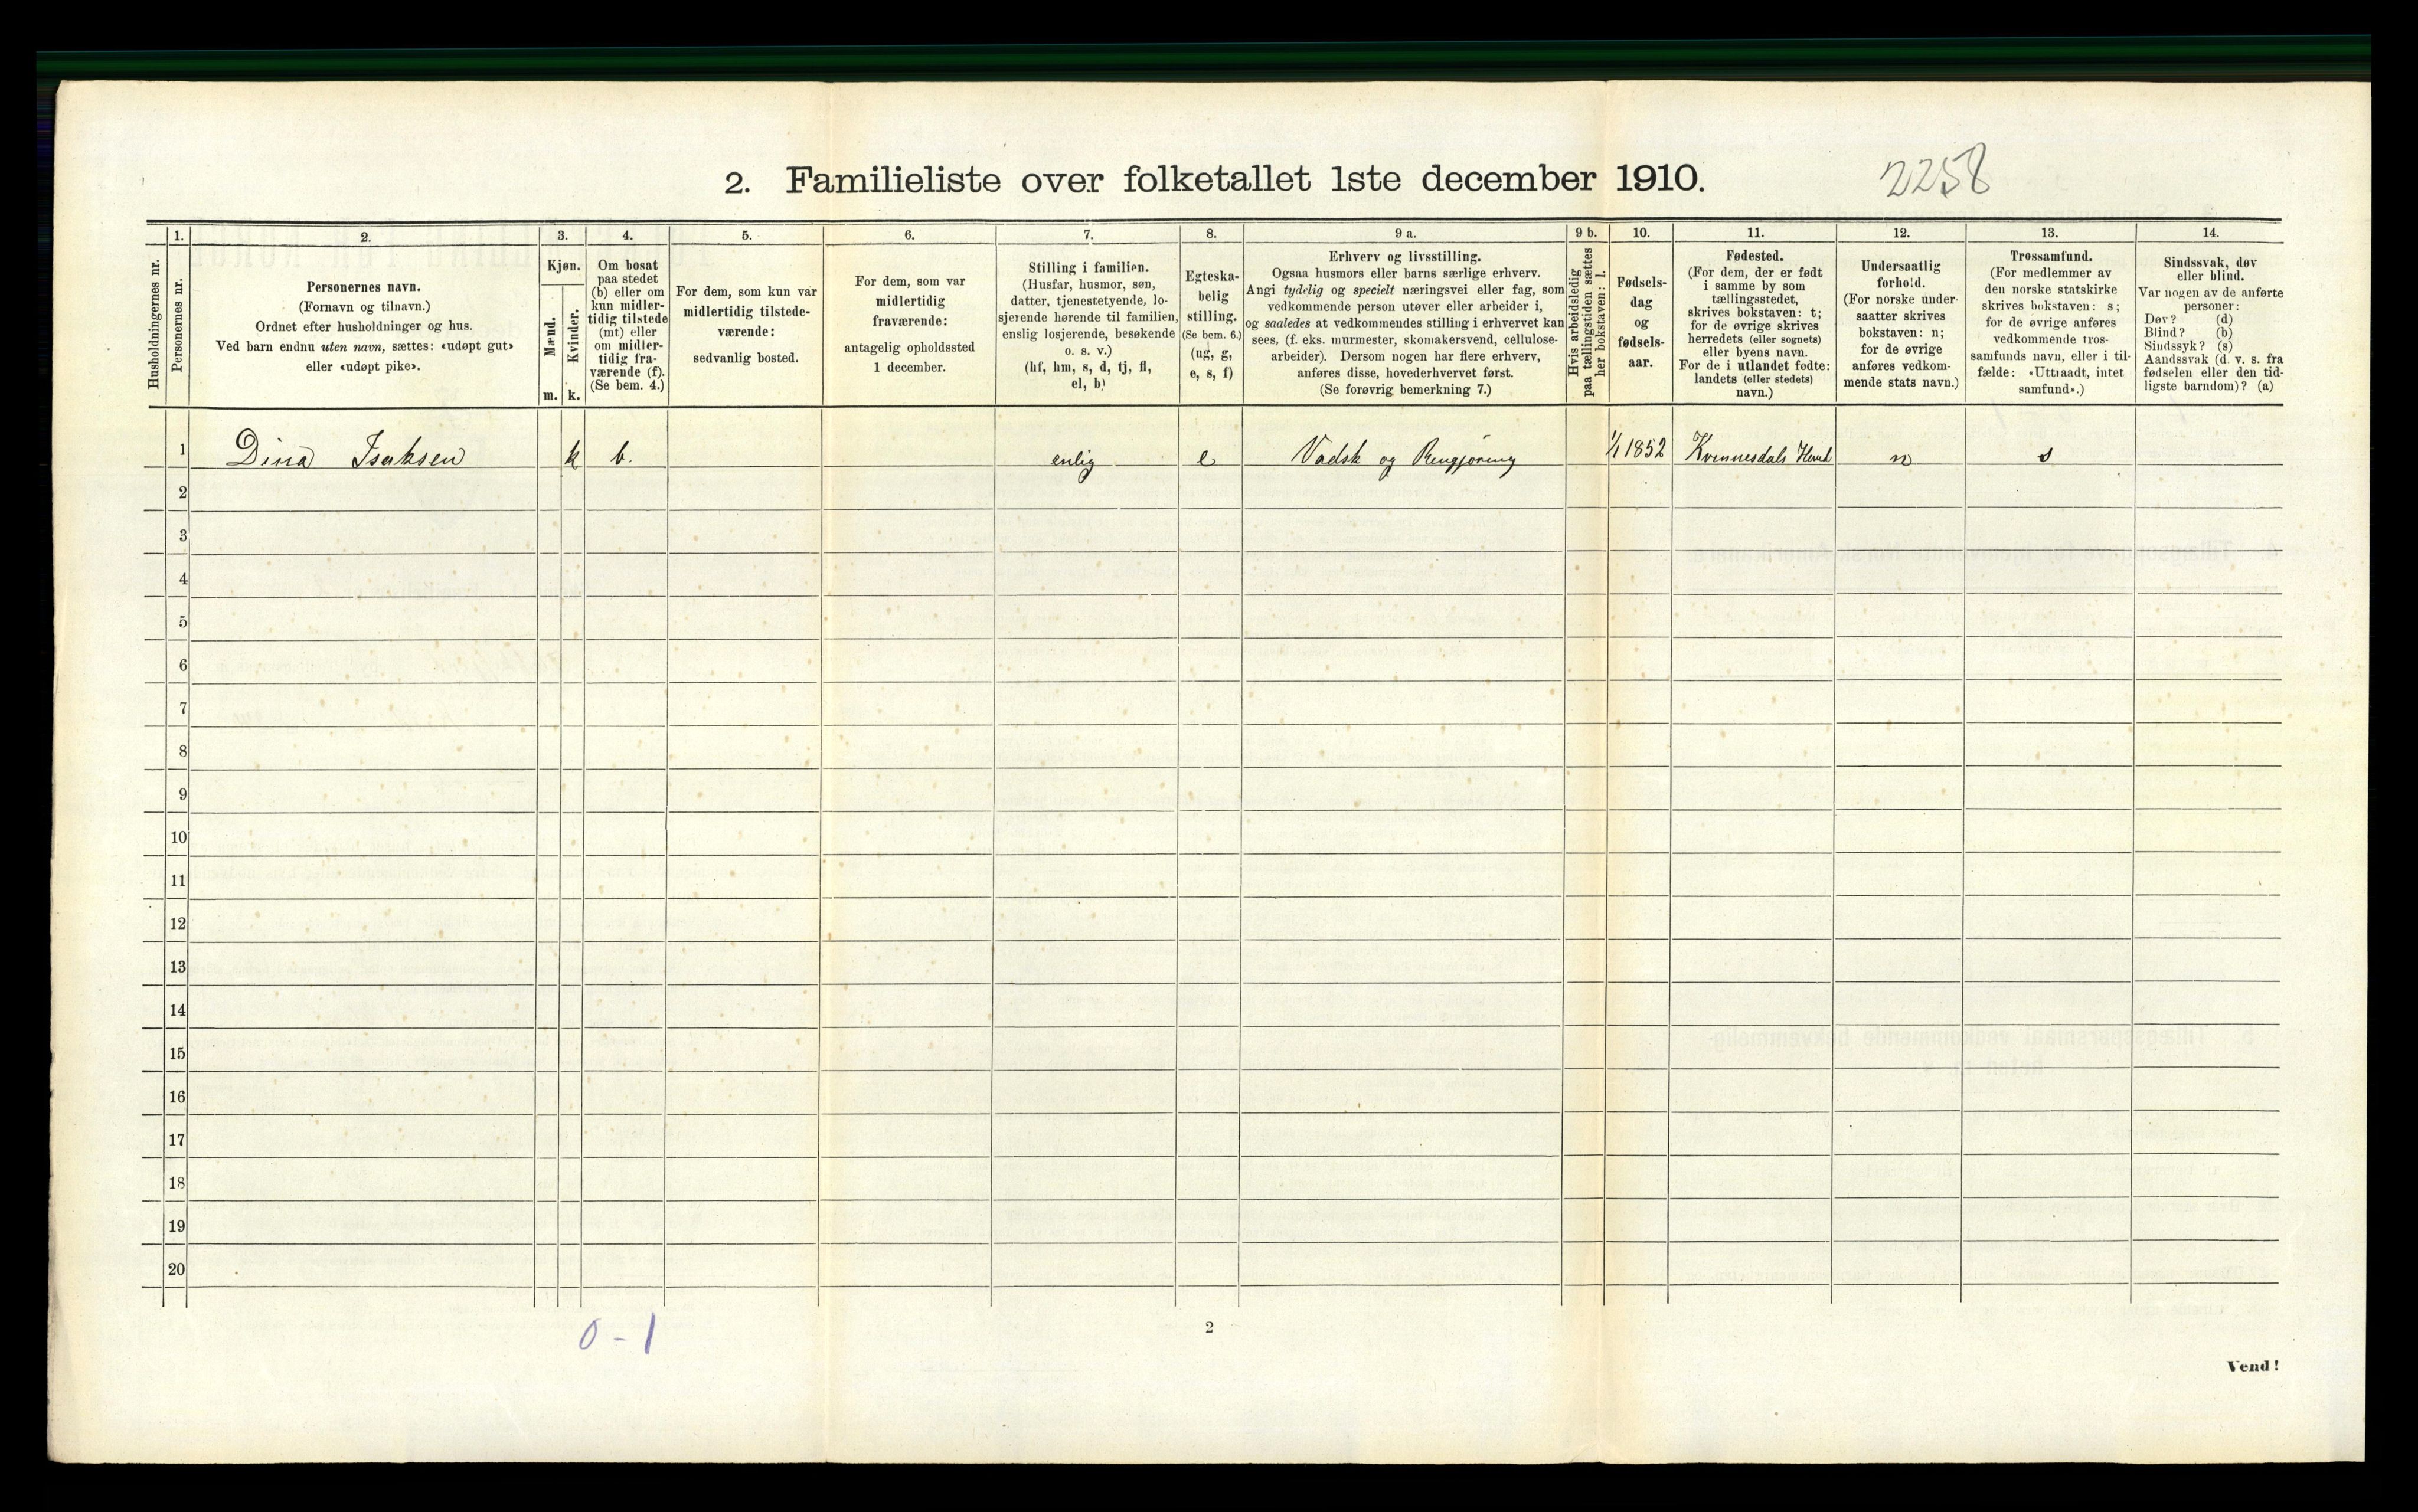 2. Familieliste over folketallet 1ste december 1910.
2258
Husholdningernes nr.
1.
Personernes nr.
2.
Personernes navn.
(Fornavn og tilnavn.)
Ordnet efter husholdninger og hus.
Ved barn endnu uten navn, sættes: «udøpt gut»
eller «udøpt pike».
3.
Kjøn.
Mænd.
Kvinder.
m.
k.
4.
Om bosat
paa stedet
(b) eller om
kun midler-
tidig tilstede
(mt) eller
om midler-
tidig fra-
værende (f).
(Se bem. 4.)
5.
For dem, som kun var
midlertidig tilstede-
værende:
sedvanlig bosted.
6.
For dem, som var
midlertidig
fraværende:
antagelig opholdssted
1 december.
7.
Stilling i familien.
(Husfar, husmor, søn,
datter, tjenestetyende, lo-
sjerende hørende til familien,
enslig losjerende, besøkende
o. s. v.)
(hf, hm, s, d, tj, fl,
el, b)
8.
Egteska-
belig
stilling.
(Se bem. 6.)
(ug, g,
e, s, f)
9 a.
Erhverv og livsstilling.
Ogsaa husmors eller barns særlige erhverv.
Angi tydelig og specielt næringsvei eller fag, som
vedkommende person utøver eller arbeider i,
og saaledes at vedkommendes stilling i erhvervet kan
sees, (f. eks. murmester, skomakersvend, cellulose-
arbeider). Dersom nogen har flere erhverv,
anføres disse, hovederhvervet først.
(Se forøvrig bemerkning 7.)
9 b.
Hvis arbeidsledig
paa tællingstiden sættes
her bokstaven: l.
10.
Fødsels-
dag
og
fødsels-
aar.
11.
Fødested.
(For dem, der er født
i samme by som
tællingsstedet,
skrives bokstaven: t;
for de øvrige skrives
herredets (eller sognets)
eller byens navn.
For de i utlandet fødte:
landets (eller stedets)
navn.)
12.
Undersaatlig
forhold.
(For norske under-
saatter skrives
bokstaven: n;
for de øvrige
anføres vedkom-
mende stats navn.)
13.
Trossamfund.
(For medlemmer av
den norske statskirke
skrives bokstaven: s;
for de øvrige anføres
vedkommende tros-
samfunds navn, eller i til-
fælde: «Uttraadt, intet
samfund».)
14.
Sindssvak, døv
eller blind.
Var nogen av de anførte
personer:
Døv? (d)
Blind? (b)
Sindssyk? (s)
Aandssvak (d. v. s. fra
fødselen eller den tid-
ligste barndom)? (a)
1 Dina Isaksen k b. enlig e Vadsk og Rengjøring 1/1 1852 Kvinnesdals Herred n s
2
3
4
5
6
7
8
9
10
11
12
13
14
15
16
17
18
19
20
0 - 1
2
Vend!